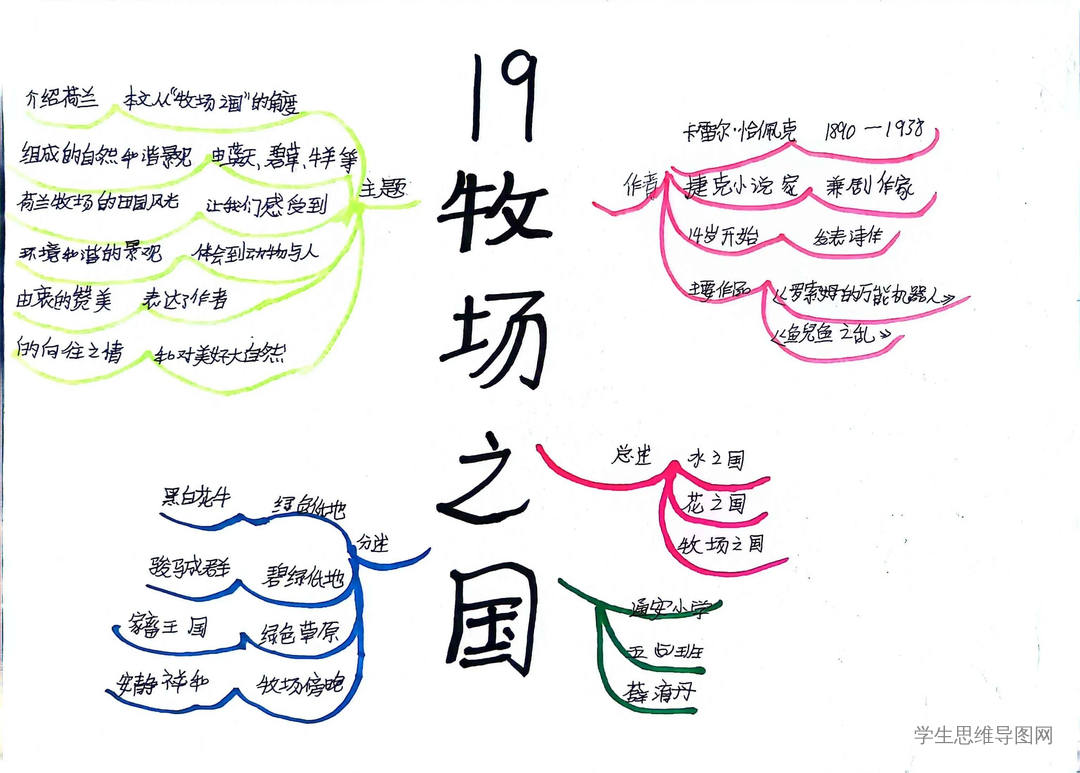 19牧场之国
主题
介绍荷兰 本文从“牧场之国”的角度
组成的自然和谐景观 由蓝天、碧草、牛羊等
荷兰牧场的田园风光 让我们感受到
环境和谐的景观 体会到动物与人
由衷的赞美 表达了作者
的向往之情 和对美好大自然
作者
卡雷尔·恰佩克 1890—1938
捷克小说家 兼剧作家
14岁开始 发表诗作
主要作品 《罗素姆的万能机器人》
《鲵鱼之乱》
分述
黑白花牛 绿色低地
骏马成群 碧绿低地
家畜王国 绿色草原
安静祥和 牧场傍晚
总述
水之国
花之国
牧场之国
通安小学
五四班
学生思维导图网